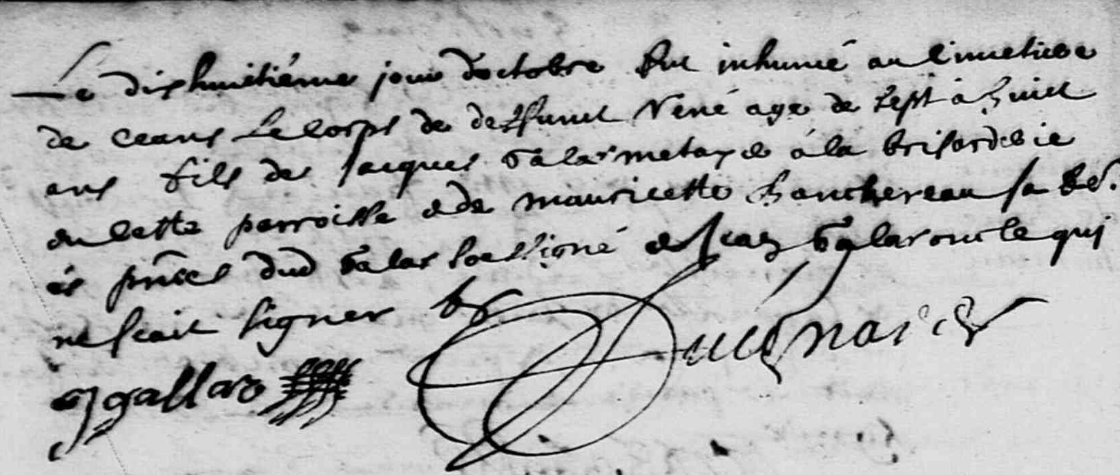 Le dixhuitiéme jour doctobre fut inhumé au Cimetiere
de ceans Le Corps de deffunct René age de sept a huict
ans fils de Jacques Galar metayer á la
en Cette parroisse et de mauricette hanchereau sa fe.
és pñces dud Galar soussigné et Jean Galar oncle qui
ne scait signer
J gallard